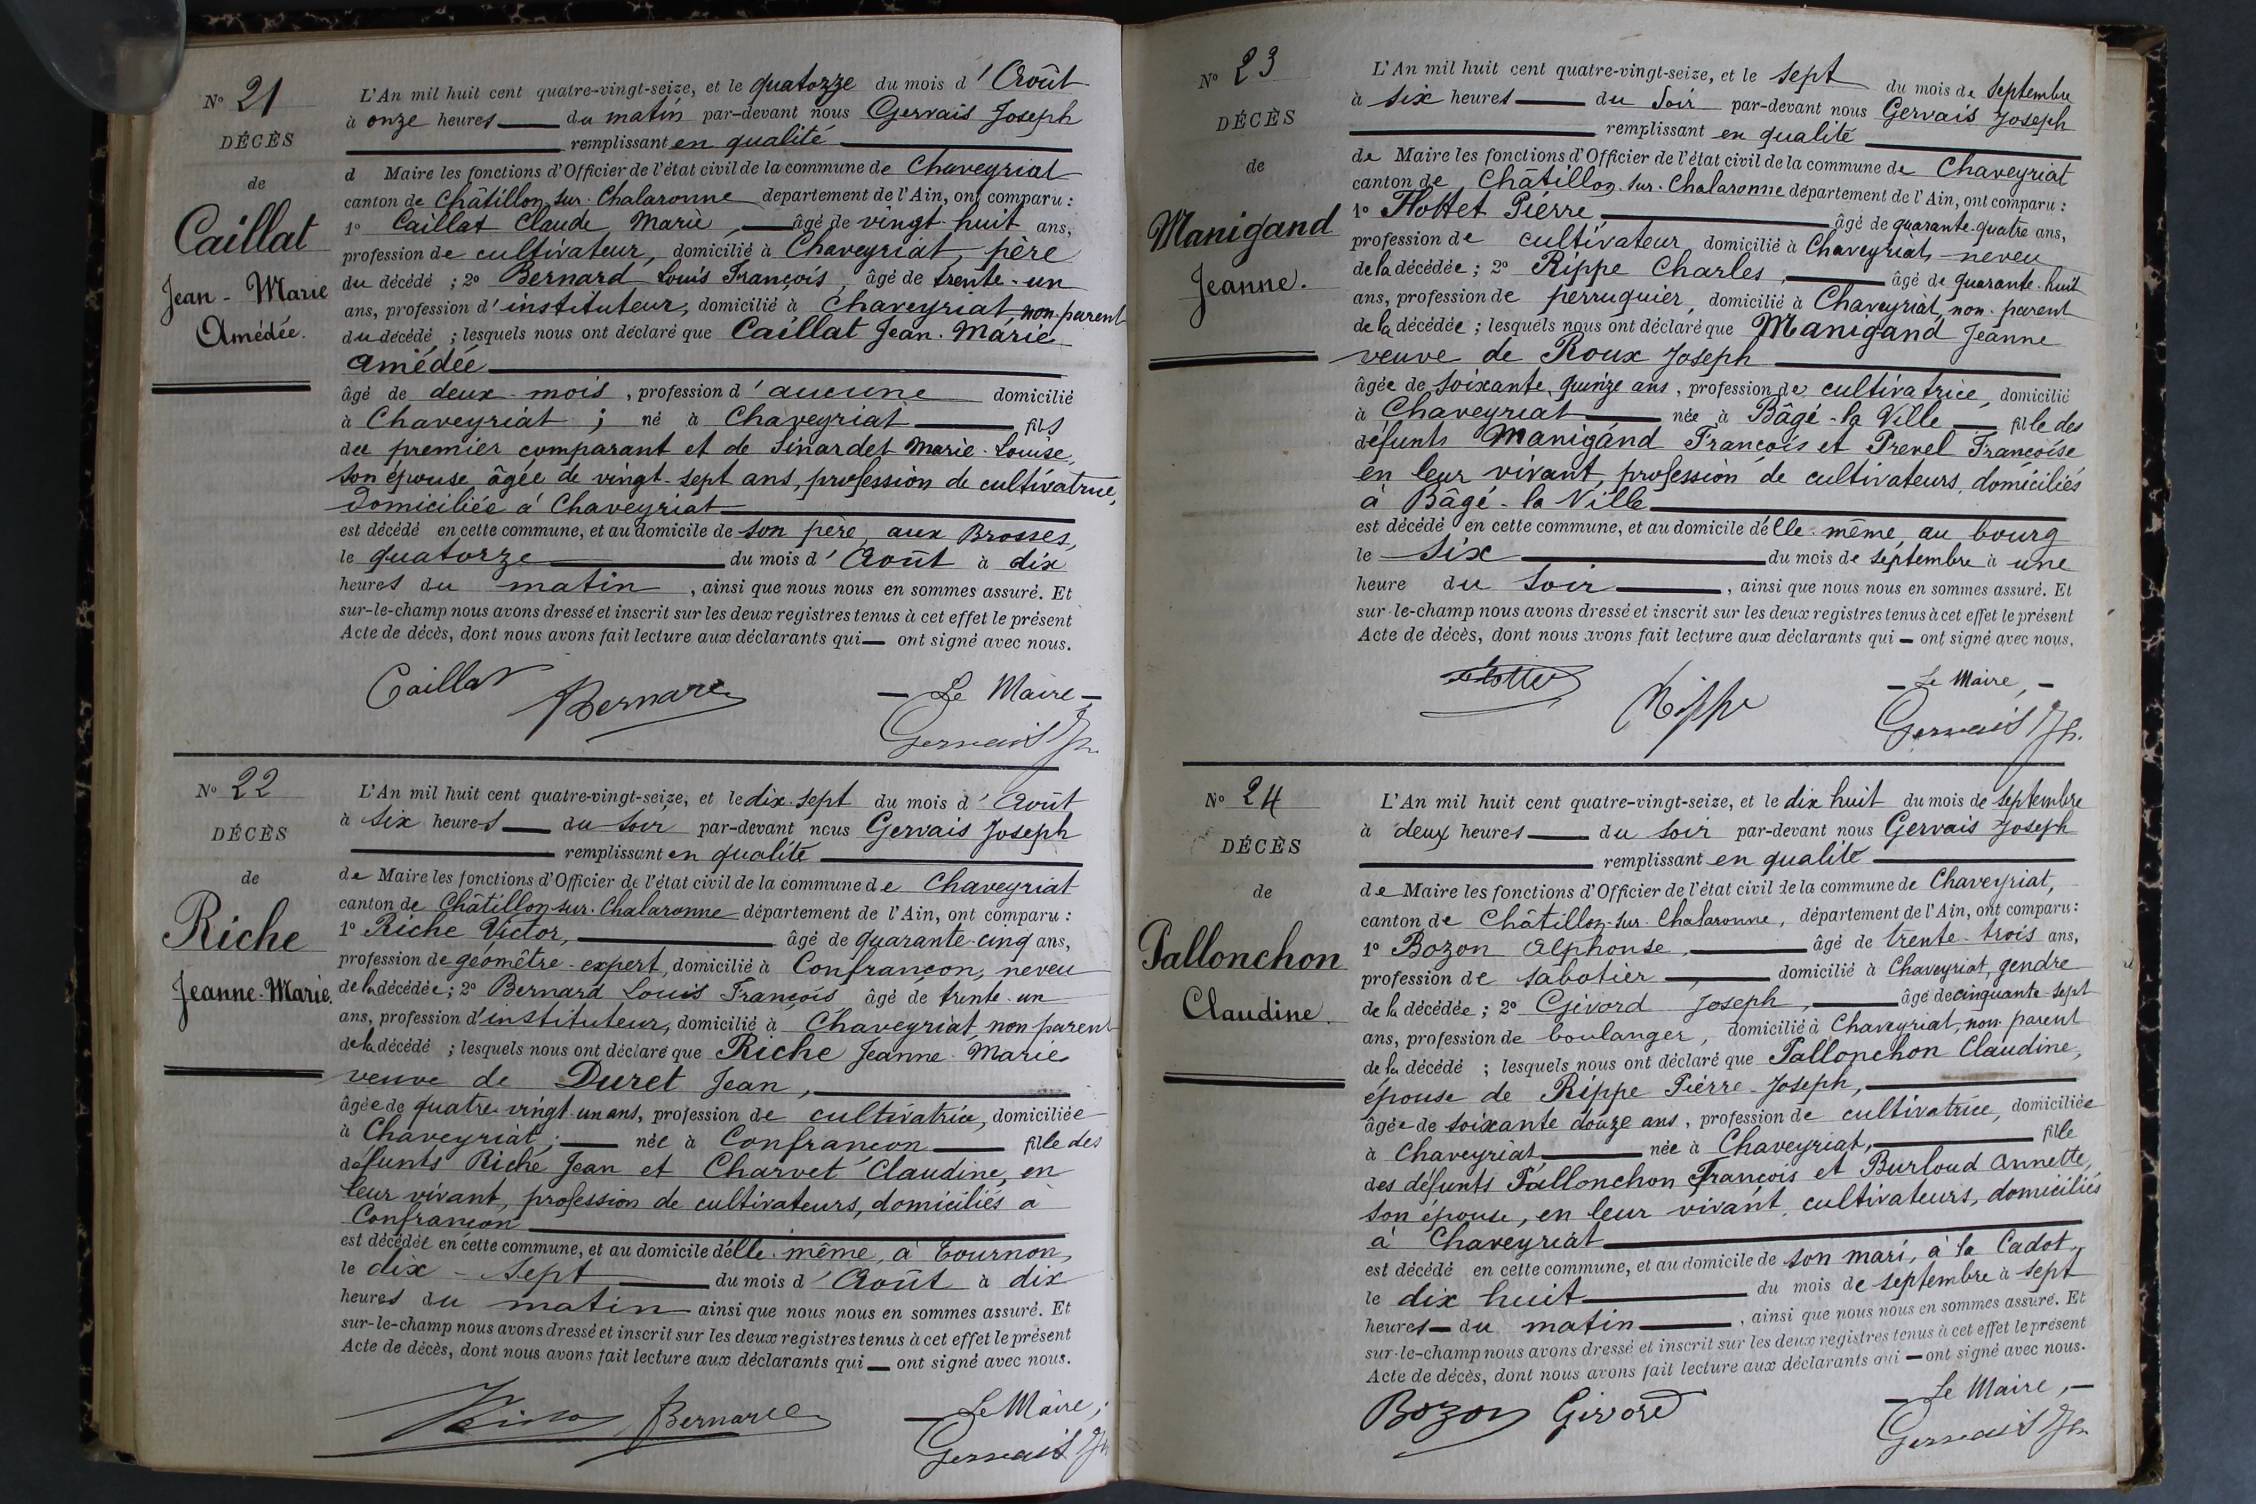 N° 21
DÉCÈS
de
Caillat
Jean-Marie
Amédée.
L'An mil huit cent quatre-vingt-seize, et le quatorze du mois d'Août
à onze heures du matin par-devant nous Gervais Joseph
remplissant en qualité
d Maire les fonctions d'Officier de l'état civil de la commune de Chaveyriat
canton de Châtillon-sur-Chalaronne département de l'Ain, ont comparu :
1° Caillat Claude Marie, âgé de vingt-huit ans,
profession de cultivateur, domicilié à Chaveyriat, père
du décédé ; 2° Bernard Louis François, âgé de trente-un
ans, profession d'instituteur, domicilié à Chaveyriat non-parent
du décédé ; lesquels nous ont déclaré que Caillat Jean-Marie
Amédée
âgé de deux mois, profession d'aucune domicilié
à Chaveyriat ; né à Chaveyriat fils
du premier comparant et de Sinardet Marie-Louise,
son épouse âgée de vingt-sept ans, profession de cultivatrice,
domiciliée à Chaveyriat
est décédé en cette commune, et au domicile de son père, aux Brosses,
le quatorze du mois d'Août à dix
heures du matin, ainsi que nous nous en sommes assuré. Et
sur-le-champ nous avons dressé et inscrit sur les deux registres tenus à cet effet le présent
Acte de décès, dont nous avons fait lecture aux déclarants qui — ont signé avec nous.
Caillat Bernard — Le Maire —
Gervais Jh
N° 22
DÉCÈS
de
Riche
Jeanne-Marie.
L'An mil huit cent quatre-vingt-seize, et le dix-sept du mois d'Août
à six heures du soir par-devant nous Gervais Joseph
remplissant en qualité
de Maire les fonctions d'Officier de l'état civil de la commune de Chaveyriat
canton de Châtillon-sur-Chalaronne département de l'Ain, ont comparu :
1° Riche Victor, âgé de quarante-cinq ans,
profession de géomètre-expert, domicilié à Confrançon, neveu
de la décédée ; 2° Bernard Louis François âgé de trente-un
ans, profession d'instituteur, domicilié à Chaveyriat, non parent
de la décédé ; lesquels nous ont déclaré que Riche Jeanne-Marie
veuve de Duret Jean,
âgée de quatre-vingt-un ans, profession de cultivatrice, domiciliée
à Chaveyriat, née à Confrançon fille des
défunts Riche Jean et Charvet Claudine, en
leur vivant, profession de cultivateurs, domiciliés à
Confrançon
est décédée en cette commune, et au domicile d'elle-même, à Tournon,
le dix-sept du mois d'Août à dix
heures du matin ainsi que nous nous en sommes assuré. Et
sur-le-champ nous avons dressé et inscrit sur les deux registres tenus à cet effet le présent
Acte de décès, dont nous avons fait lecture aux déclarants qui — ont signé avec nous.
Bernard — Le Maire,
Gervais Jh
N° 23
DÉCÈS
de
Manigand
Jeanne.
L'An mil huit cent quatre-vingt-seize, et le sept du mois de septembre
à six heures du soir par-devant nous Gervais Joseph
remplissant en qualité
de Maire les fonctions d'Officier de l'état civil de la commune de Chaveyriat
canton de Châtillon-sur-Chalaronne département de l'Ain, ont comparu :
1° Flottet Pierre âgé de quarante-quatre ans,
profession de cultivateur domicilié à Chaveyriat, neveu
de la décédée ; 2° Rippe Charles, âgé de quarante-huit
ans, profession de perruquier, domicilié à Chaveyriat, non-parent
de la décédée ; lesquels nous ont déclaré que Manigand Jeanne
veuve de Roux Joseph
âgée de soixante-quinze ans, profession de cultivatrice, domicilié
à Chaveyriat née à Bâgé-la-Ville fille des
défunts Manigand François et Prevel Françoise
en leur vivant, profession de cultivateurs, domiciliés
à Bâgé-la-Ville
est décédé en cette commune, et au domicile d'elle-même, au bourg
le six du mois de septembre à une
heure du soir, ainsi que nous nous en sommes assuré. Et
sur-le-champ nous avons dressé et inscrit sur les deux registres tenus à cet effet le présent
Acte de décès, dont nous avons fait lecture aux déclarants qui — ont signé avec nous.
Rippe — Le Maire, —
Gervais Jh.
N° 24
DÉCÈS
de
Pallonchon
Claudine.
L'An mil huit cent quatre-vingt-seize, et le dix huit du mois de septembre
à deux heures du soir par-devant nous Gervais Joseph
remplissant en qualité
de Maire les fonctions d'Officier de l'état civil de la commune de Chaveyriat,
canton de Châtillon-sur-Chalaronne, département de l'Ain, ont comparu :
1° Bozon Alphonse âgé de trente-trois ans,
profession de sabotier, domicilié à Chaveyriat, gendre
de la décédée ; 2° Givord Joseph, âgé de cinquante-sept
ans, profession de boulanger, domicilié à Chaveyriat, non parent
de la décédé ; lesquels nous ont déclaré que Pallonchon Claudine,
épouse de Rippe Pierre-Joseph,
âgée de soixante douze ans, profession de cultivatrice, domiciliée
à Chaveyriat née à Chaveyriat, fille
des défunts Pallonchon François et Burloud Annette,
son épouse, en leur vivant, cultivateurs, domiciliés
à Chaveyriat
est décédé en cette commune, et au domicile de son mari, à la Cadot,
le dix huit du mois de septembre à sept
heures du matin, ainsi que nous nous en sommes assuré. Et
sur-le-champ nous avons dressé et inscrit sur les deux registres tenus à cet effet le présent
Acte de décès, dont nous avons fait lecture aux déclarants qui — ont signé avec nous.
Bozon Givord — Le Maire, —
Gervais Jh